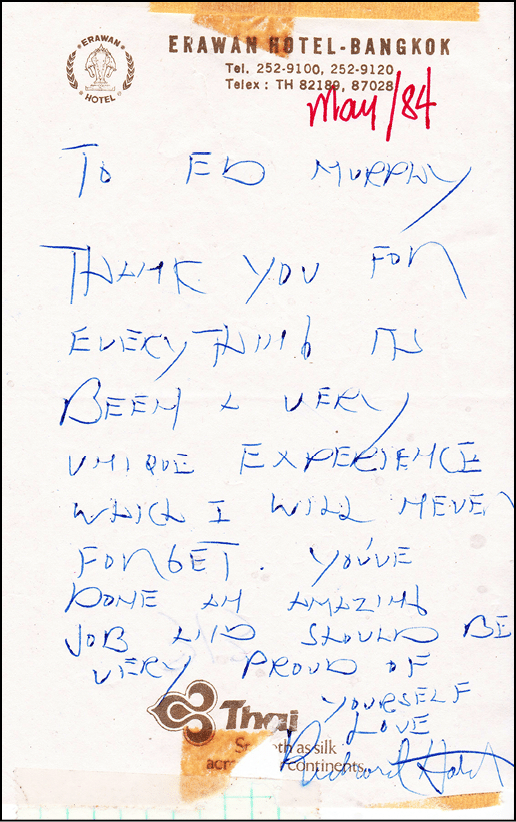 ERAWAN
HOTEL
ERAWAN HOTEL-BANGKOK
Tel. 252-9100, 252-9120
Telex : TH 82189, 87028
May/84
TO ED MURPHY
THANK YOU FOR
EVERYTHING ITS
BEEN A VERY
UNIQUE EXPERIENCE
WHICH I WILL NEVER
FORGET. YOU'VE
DONE AN AMAZING
JOB AND SHOULD BE
VERY PROUD OF
YOURSELF
LOVE
Thai
as silk
continents
Richard